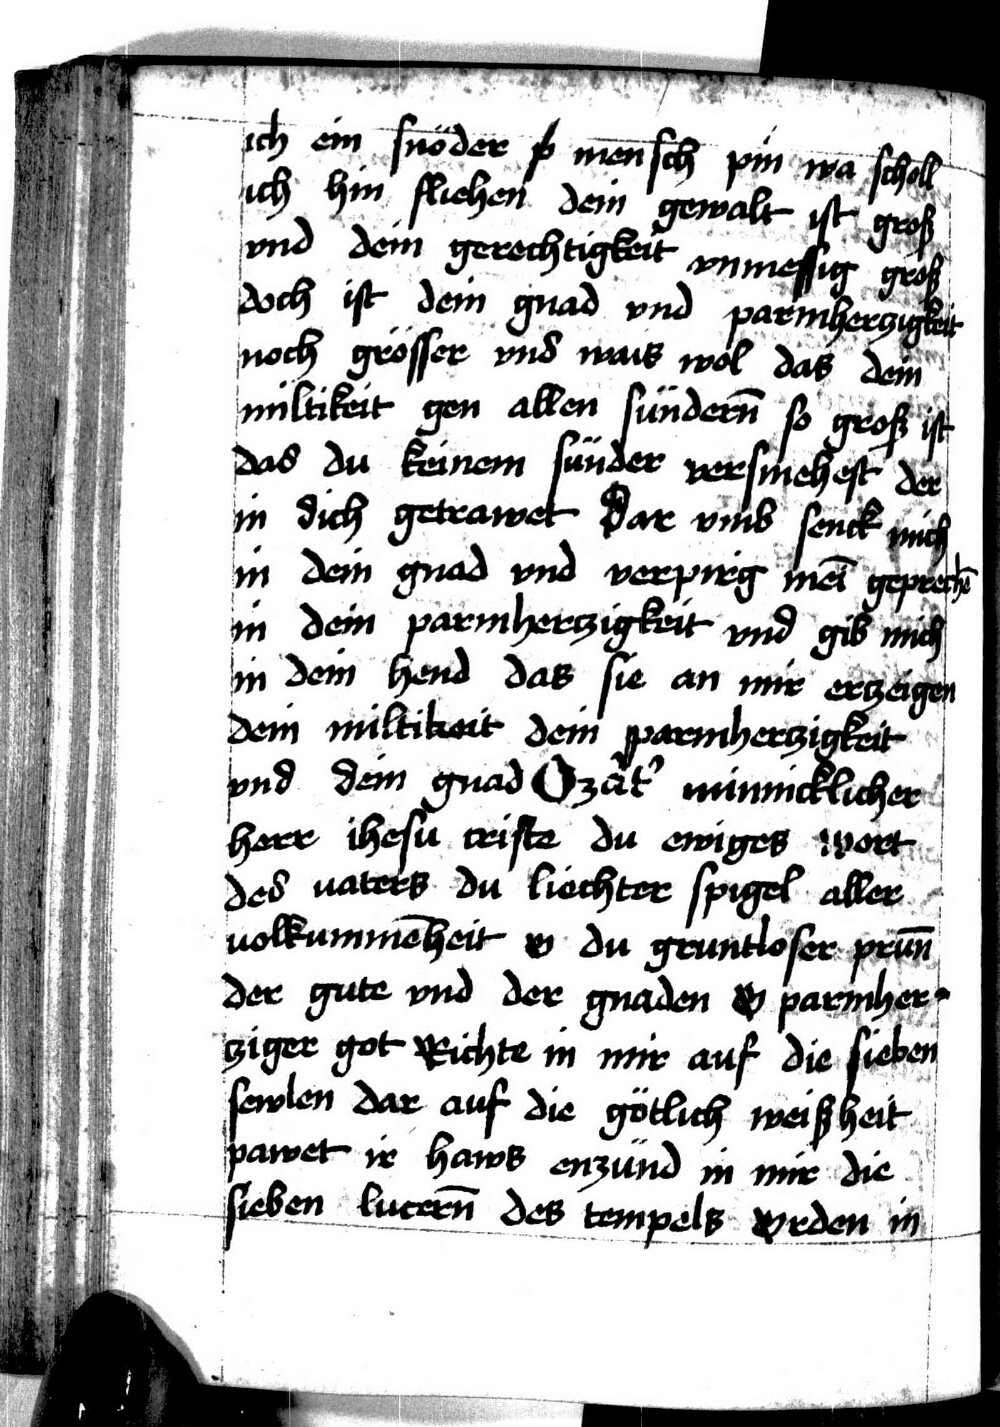 ich ein snöder mensch pin wa scholl
ich hin fliehen dein gewalt ist groß
vnd dein gerechtigkeit vnmessig groß
doch ist dein gnad vnd parmherczigkeit
noch grösser vnd wais wol das dein
miltikeit gen allen sündern̄ so groß ist
das du keinem sünder versmehest der
in dich getrawet Dar vmb senck mich
in dein gnad vnd verpirg mei̅ geprechē
in dein parmherczigkeit vnd gib mich
in dein hend das sie an mir erczeigen
dein miltikeit dein parmherczigkeit
vnd dein gnad O zart' minnicklicher
herr ihesu criste du ewiges wort
des vaters du liechter spigel aller
volkummēheit o du gruntloser prun̄
der gute vnd der gnaden O parmher-
cziger got Richte in mir auf die sieben
sewlen dar auf die götlich weißheit
pawet ir haws enzünd in mir die
sieben lucern̄ des tempels orden in